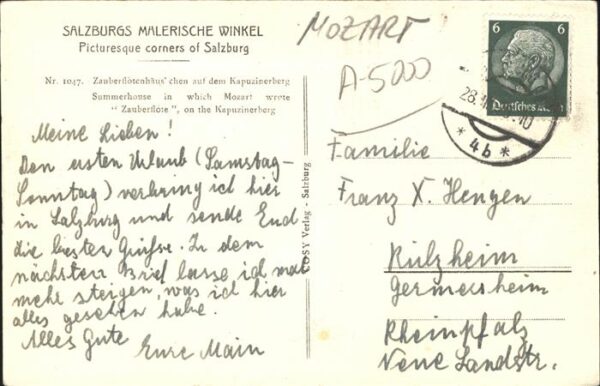 SALZBURGS MALERISCHE WINKEL
Picturesque corners of Salzburg
Nr. 1047. Zauberflötenhäus'chen auf dem Kapuzinerberg
Summerhouse in which Mozart wrote
"Zauberflöte", on the Kapuzinerberg
MOZART
A-5000
6 6
Deutsches Reich
* 4b *
Meine Lieben!
Den ersten Urlaub (Samstag-
Sonntag) verbring ich hier
in Salzburg und sende Euch
die besten Grüsse. In dem
nächsten Brief lasse ich mal
mehr steigen, was ich hier
alles gesehen habe.
Alles Gute
Eure
COSY Verlag - Salzburg
Familie
Franz X. Hengen
Rülzheim
Germersheim
Rheinpfalz
Neue Landstr.